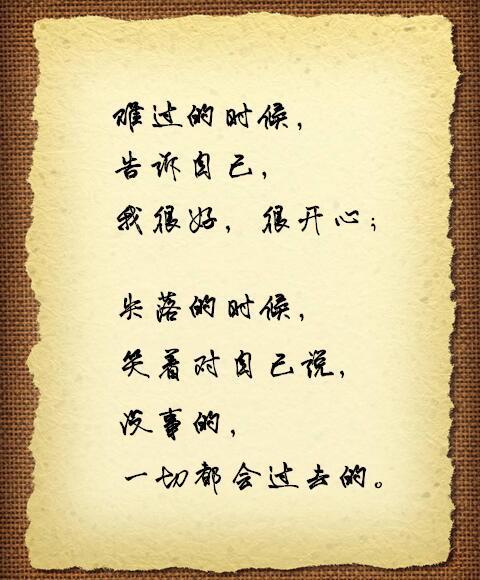 难过的时候，
告诉自己，
我很好，很开心；
失落的时候，
笑着对自己说，
没事的，
一切都会过去的。